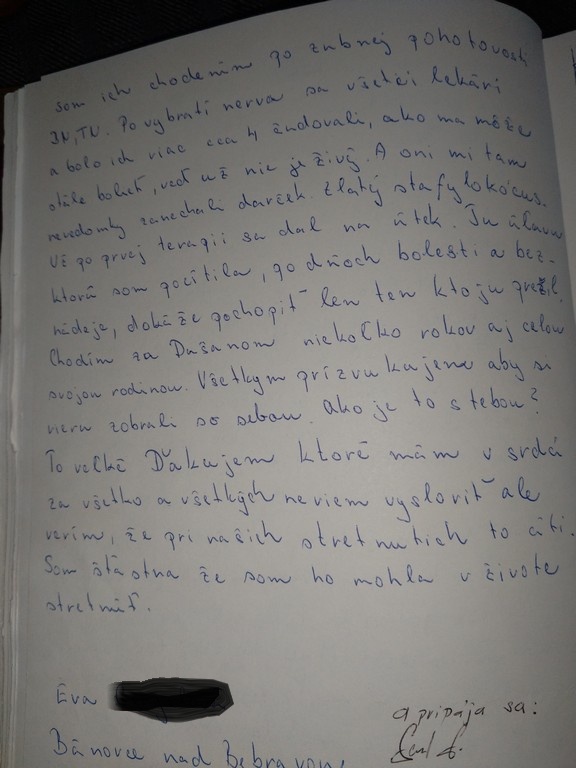 som ich chodením po zubnej pohotovosti
JN, TN. Po vybratí nerva sa všetci lekári
a bolo ich viac cca 4 čudovali, ako ma môže
stále bolieť, veď už nie je živý. A oni mi tam
nevedomky zanechali darček. Zlatý stafylokokus.
Už po prvej terapii sa dal na útek. Tú úľavu
ktorú som pocítila, po dňoch bolesti a bez-
nádeje, dokáže pochopiť len ten kto ju prežil.
Chodím za Dušanom niekoľko rokov aj celou
svojou rodinou. Všetkým prízvukujeme aby si
vieru zobrali so sebou. Ako je to s tebou?
To veľké Ďakujem ktoré mám v srdci
za všetko a všetkých neviem vysloviť ale
verím, že pri našich stretnutiach to cíti.
Som šťastná že som ho mohla v živote
stretnúť.
Eva
a pripája sa:
Bánovce nad Bebravou